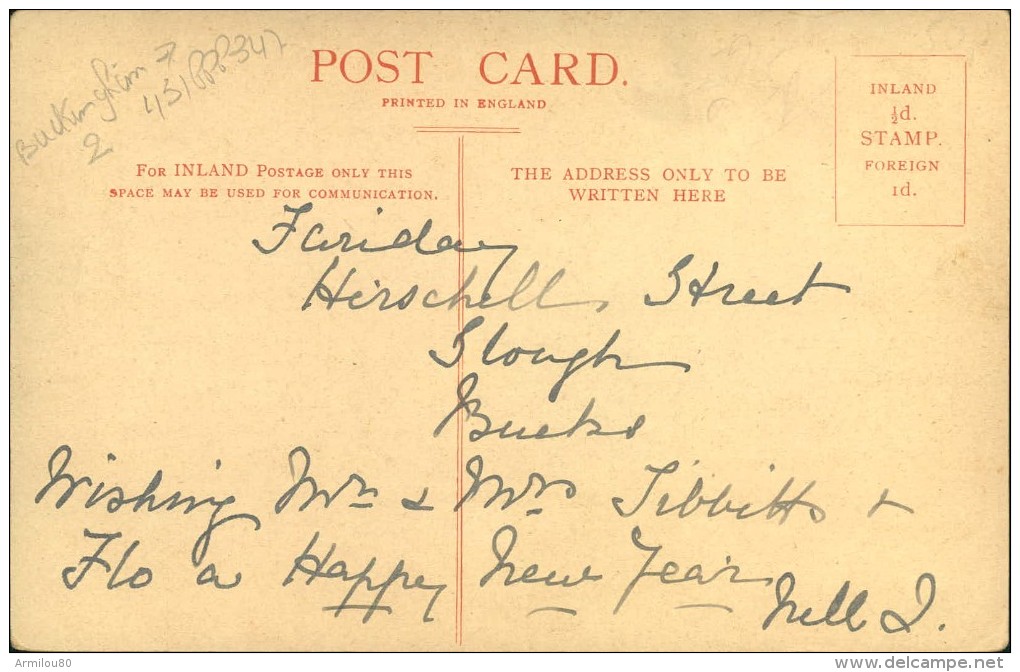 POST CARD.
PRINTED IN ENGLAND
INLAND
½d.
STAMP.
FOREIGN
1d.
FOR INLAND POSTAGE ONLY THIS
SPACE MAY BE USED FOR COMMUNICATION.
THE ADDRESS ONLY TO BE
WRITTEN HERE
2
Hirschell Street
Slough
Bucks
Wishing Mr & Mrs Tibbitts &
Flo a Happy New Year
Nell
Armilou80
www.delcampe.net